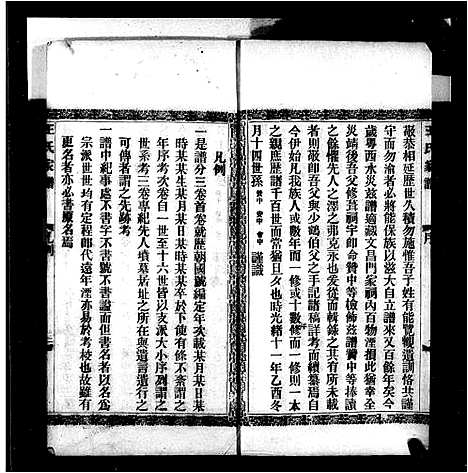 敬恭相延歷世久積勿施惟吾子姓有能覽觀遺訓恪共謹
守而勿渝者必將能保族以滋大自立譜來又餘年矣今
歲粵西水災茲譜適藏文昌門家祠内百物湮損此猶幸全
災靖後吾父修葺祠宇卽命贊中等檢飭茲譜贊中等捧讀
之餘懼先人之澤之弗克永也爰從而輯錄之其有所未明
者則敬以吾父與少鶴伯父之手記諸稿詳考而續纂焉自
今伊始凡我族人或年而一修或十數修而一修則一本
之親應歷諸千百世而當猶旦夕也時光緒十一年乙酉冬
月十四世孫 贊中 會中 謹識
凡例
一是譜分三卷首卷就歷朝國號編定年次載某月某日某
時某某生某月某日某時某某卒於下使有條不紊謂之
年序考次卷自一世至十六世以支派大小序列謂之
世系考三卷專紀先人墳墓居址之所在與遺言遺行之
可傳者謂之先跡考
一譜中紀事書名不書字書號不書諡而但書名者以名爲
宗派世世均有定程卽代遠年湮亦易於考校也故雖有
更名者亦必書原名焉
王氏家譜
王氏家譜